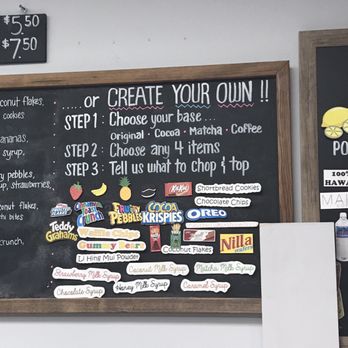 $5.50
$7.50
conut flakes,
cookies
ananas,
syrup,
ry pebbles,
up, strawberries,
conut flakes,
bites
crunch,
..... or CREATE YOUR OWN !!
STEP 1: Choose your base...
Original · Cocoa · Matcha · Coffee
STEP 2: Choose any 4 items
STEP 3: Tell us what to chop & top
KitKat
Shortbread Cookies
Chocolate Chips
Crunch
FRUITY PEBBLES
COCOA KRISPIES
OREO
Teddy Grahams
Waffle Chips
Gummy Bear
Coconut Flakes
Nilla
wafers
Li Hing Mui Powder
Strawberry Milk Syrup
Coconut Milk Syrup
Matcha Milk Syrup
Chocolate Syrup
Honey Milk Syrup
Caramel Syrup
PO
100%
HAWA
MA